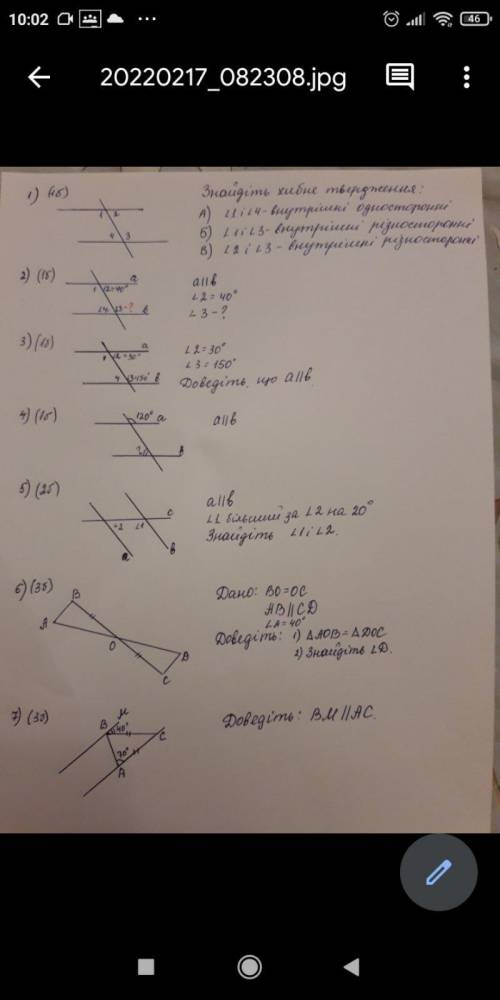 10:02
46
20220217_082308.jpg
1) (1б)
1 2
4 3
Знайдіть хибне твердження:
А) ∠1 і ∠4 - внутрішні односторонні
Б) ∠1 і ∠3 - внутрішні різносторонні
В) ∠2 і ∠3 - внутрішні різносторонні
2) (1б)
a
1 ∠2=40°
∠4 ∠3-? b
a||b
∠2 = 40°
∠3 - ?
3) (1б)
a
∠2=30°
4 ∠3=150° b
∠2=30°
∠3=150°
Доведіть, що a||b.
4) (1б)
120° a
b
a||b
5) (2б)
∠2 ∠1 c
a b
a||b
∠1 більший за ∠2 на 20°
Знайдіть ∠1 і ∠2.
6) (3б)
B
A
O
B
C
Дано: BO=OC
AB||CD
∠A=40°
Доведіть: 1) ΔAOB=ΔDOC
2) Знайдіть ∠D.
7) (3б)
M
B 40° C
70°
A
Доведіть: BM||AC.